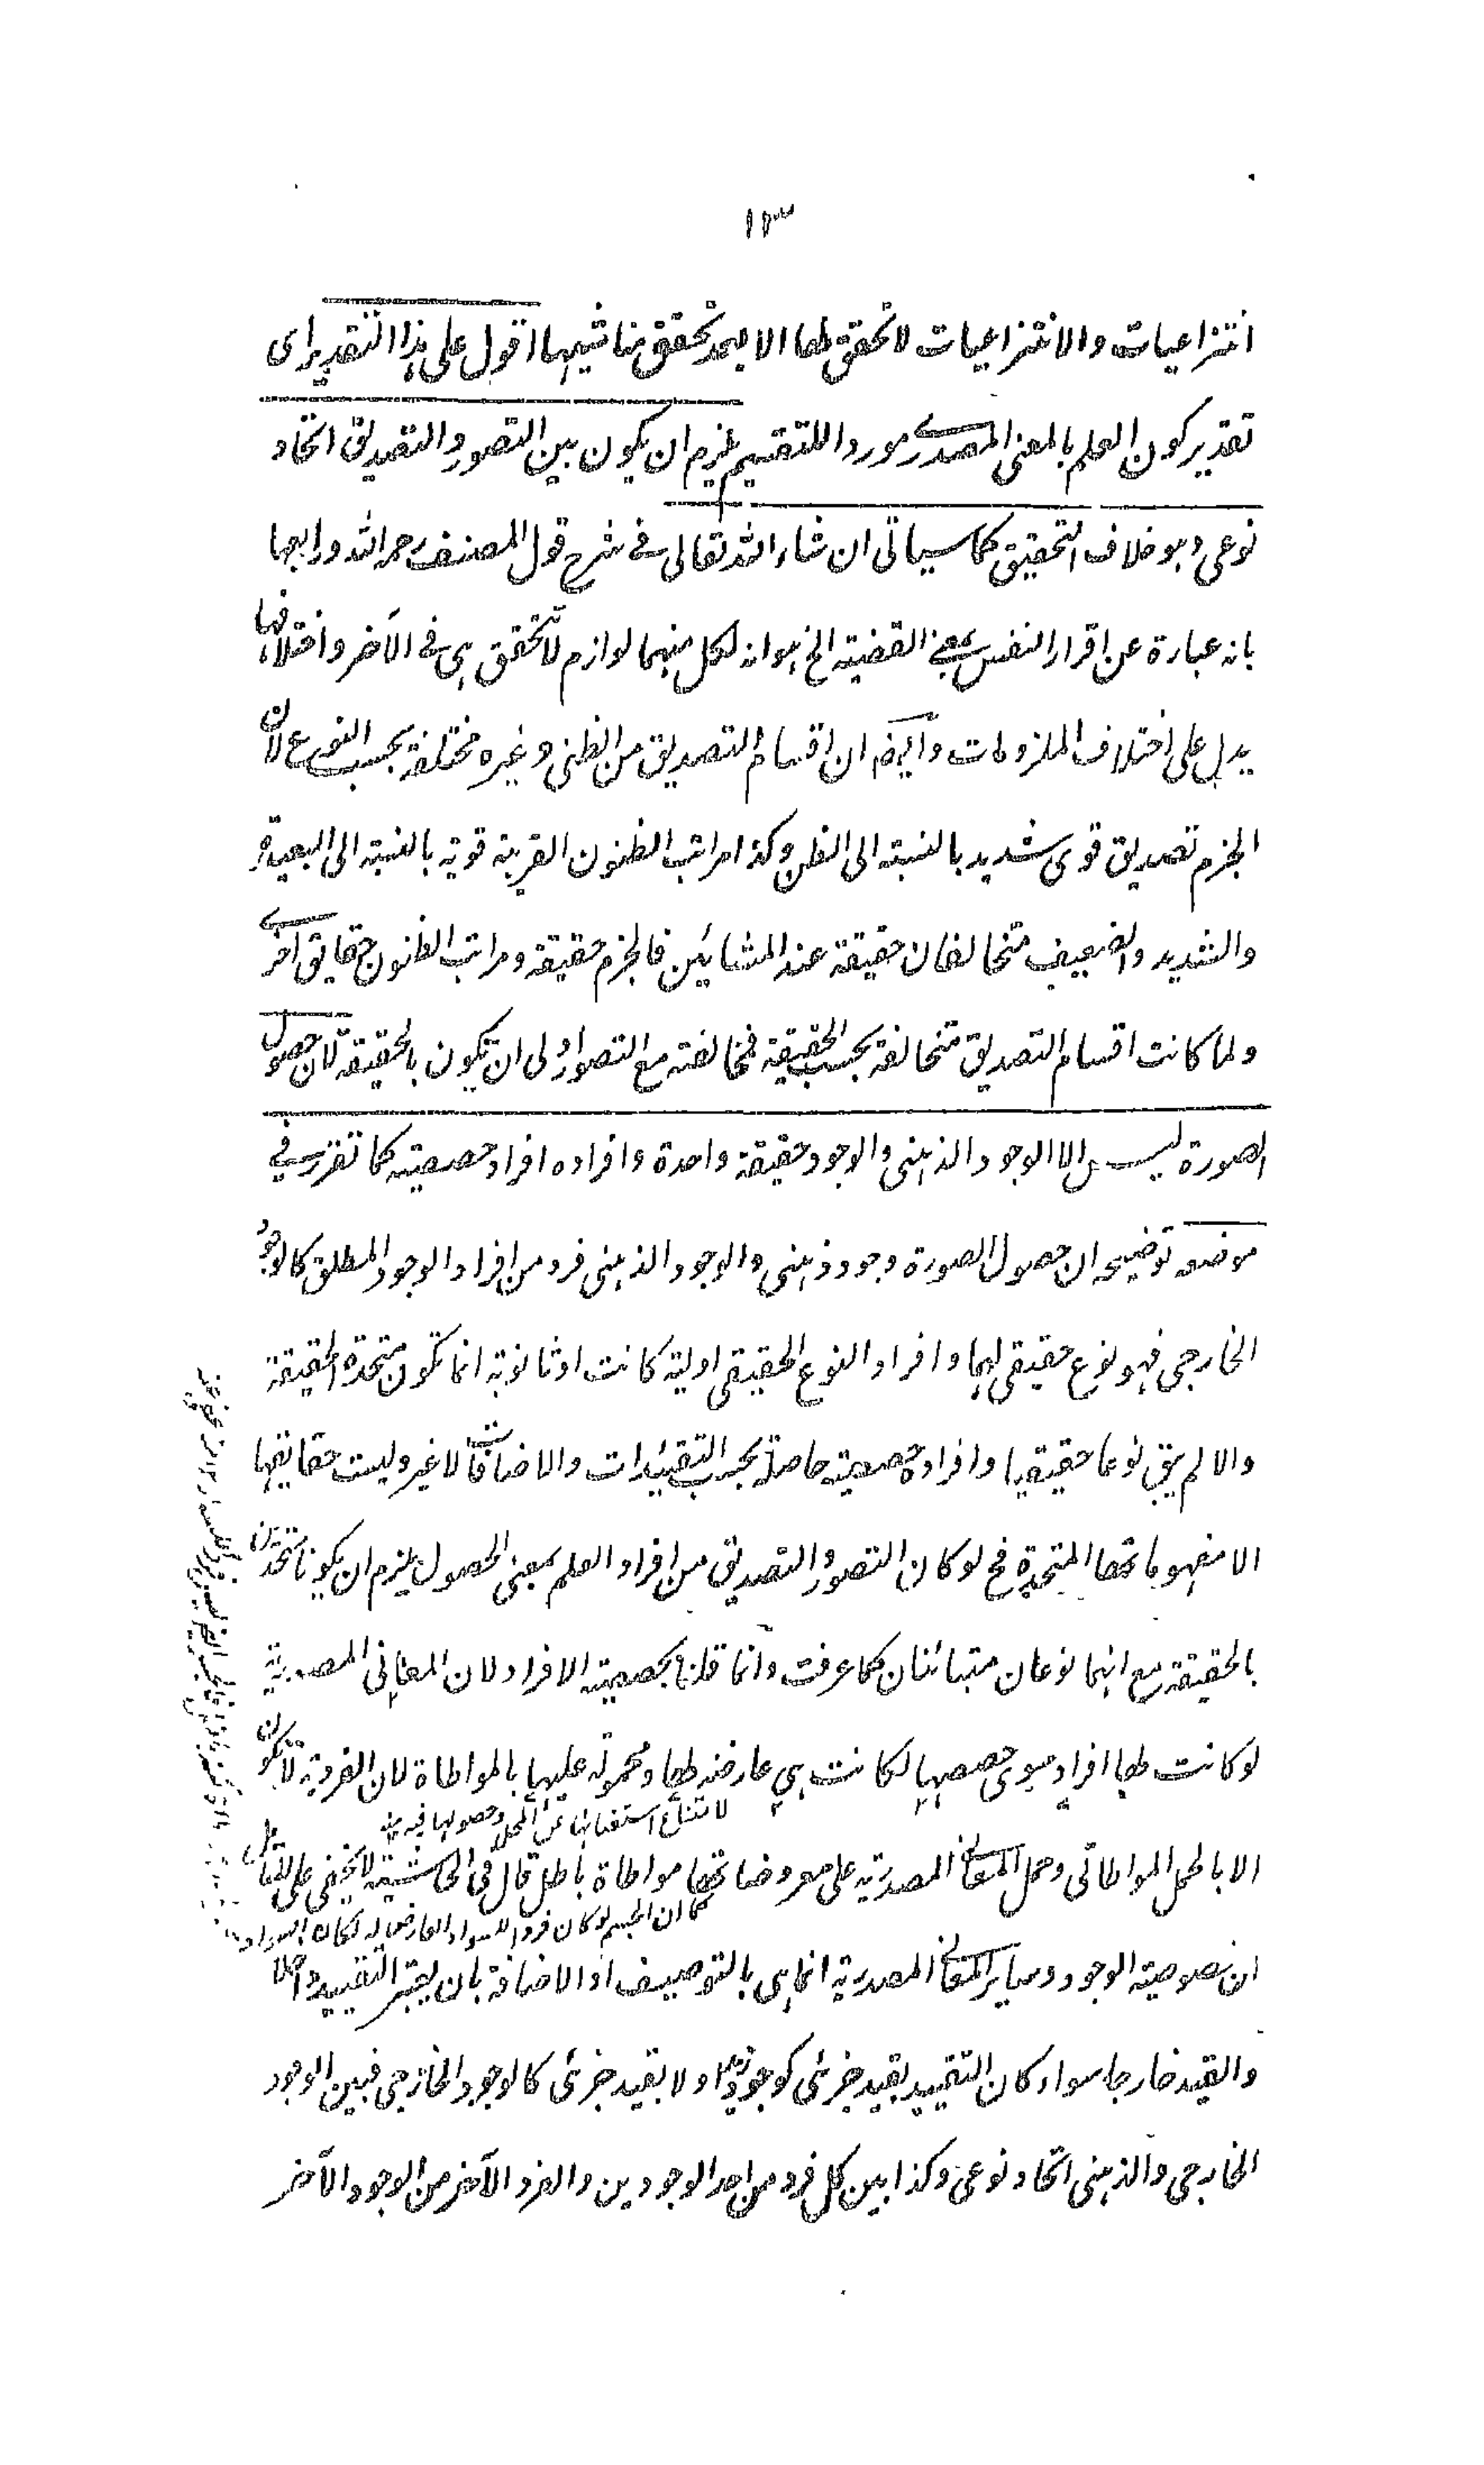 ١٣
انتزاعيات والانتزاعيات لا تحقق لها الا بعد تحقق مناشيها اقول على هذا التقدير اى
تقدير كون العلم بالمعنى المصدرے موردا للتقسيم يلزم ان يكون بين التصور والتصديق اتحاد
نوعى وهو خلاف التحقيق كما سياتى ان شاء الله تعالى فے شرح قول المصنف رحمه الله ورابعها
بانه عبارة عن اقرار النفس بمعنے القضية الخ هو انه لكل منهما لوازم لا تتحقق هى فے الآخر واختلافها
يدل على اختلاف الملزومات وايضا ان اقسام التصديق من الظنى وغيره مختلفة بحسب النوع لان
الجزم تصديق قوى شديد بالنسبة الى الظن وكذا مراتب الظنون القريبة قوية بالنسبة الى البعيدة
والشديد والضعيف متخالفان حقيقة عند المشايئين فالجزم حقيقة ومراتب الظنون حقايق اخرے
ولما كانت اقسام التصديق متخالفة بحسب الحقيقة فمخالفته مع التصور اولى ان يكون بالحقيقة لان حصول
الصورة ليس الا الوجود الذهنى والوجود حقيقة واحدة وافراده افراد حصصية كما تقرر فے
موضعه توضيحه ان حصول الصورة وجود ذهنى والوجود الذهنى فرد من افراد الوجود المطلق كالوجود
الخارجى فهو نوع حقيقى لهما وافراد النوع الحقيقى اولية كانت او ثانوية انما تكون متحدة الحقيقة
والا لم يبق نوعا حقيقيا وافراده حصصية حاصلة بحسب التقييدات والاضافات لا غير وليست حقايقها
الا مفهوماتها المتحدة فح لو كان التصور والتصديق من افراد العلم بمعنى الحصول يلزم ان يكونا متحدين
بالحقيقة مع انهما نوعان متبائنان كما عرفت وانما قلنا بحصصية الافراد لان المعانى المصدرية
لو كانت لها افراد سوى حصصها لكانت هى عارضة لها ومحمولة عليها بالمواطاة لان الفردية لا تكون
لامتناع استغنائها عن المحل وحصولها فيه منه
الا بالحمل المواطاتى وحمل المعانے المصدرية على معروضاتها مواطاة باطل قال فى الحاشية لا يخفى على
كما ان الجسم لو كان فردا للسواد العارض له لكان السواد
ان خصوصية الوجود وساير المعانے المصدرية انما هى بالتوصيف او الاضافة بان يعتبر التقييد داخلا
والقيد خارجا سواء كان التقييد بقيد جزئى كوجود زيد او لا بقيد جزئى كالوجود الخارجى فبين الوجود
الخارجى والذهنى اتحاد نوعى وكذا بين كل فرد من احد الوجودين والفرد الآخر من الوجود الآخر